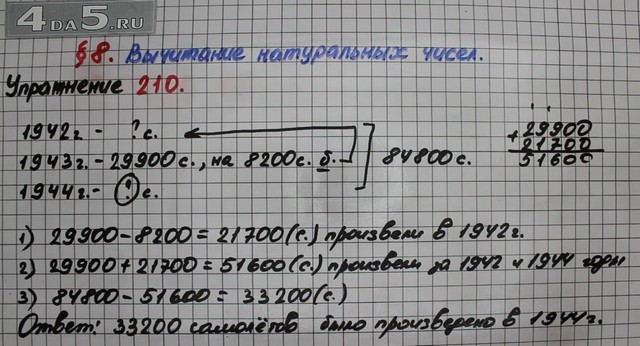 4DA5.RU
§8. Вычитание натуральных чисел.
Упражнение 210.
1942г. - ? с.
1943г. - 29900 с., на 8200 с. б. 84800 с.
1944г. - ? с.
+29900
21700
51600
1) 29900 - 8200 = 21700 (с.) произвели в 1942г.
2) 29900 + 21700 = 51600 (с.) произвели за 1942 и 1944 годы
3) 84800 - 51600 = 33200 (с.)
Ответ: 33200 самолётов было произведено в 1944г.